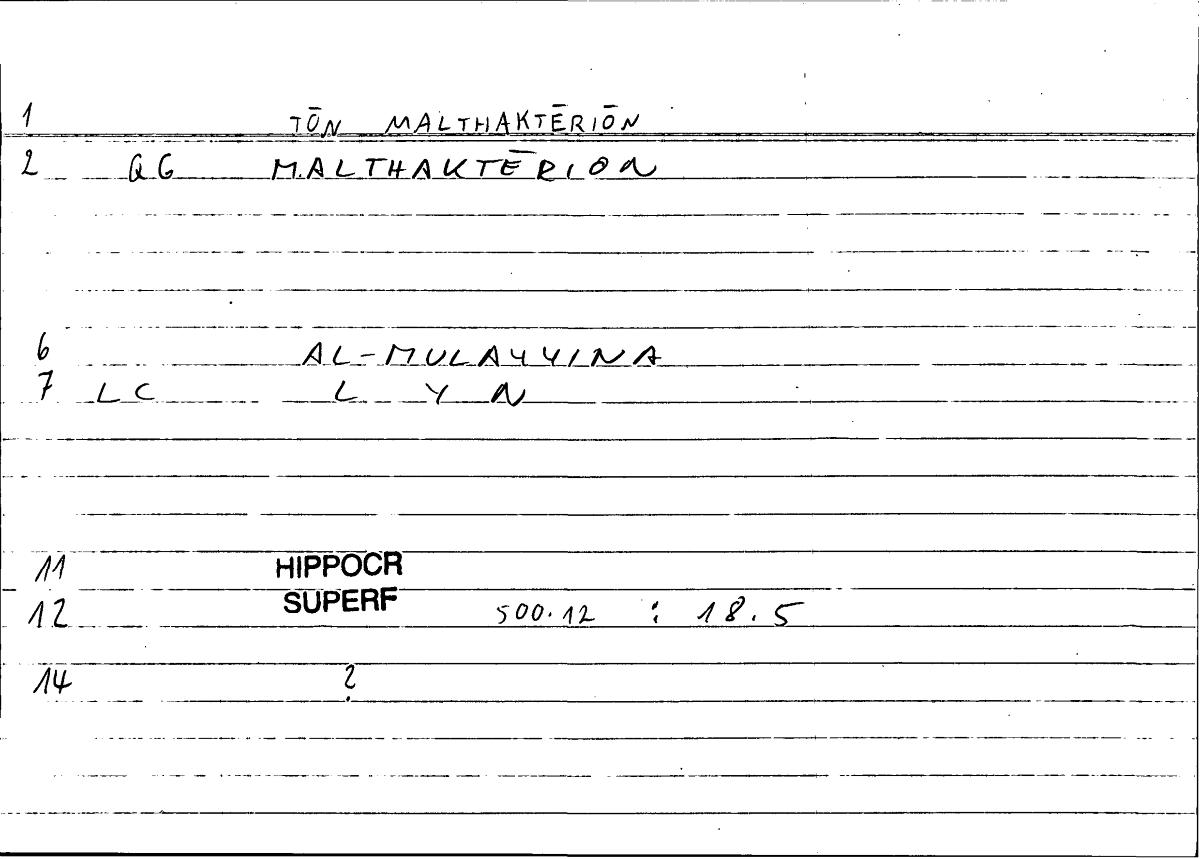 1 TŌN MALTHAKTĒRIŌN
2 QG MALTHAKTĒRION
6 AL-MULAYYINA
7 LC L Y N
11 HIPPOCR
12 SUPERF 500.12 : 18.5
14 ?